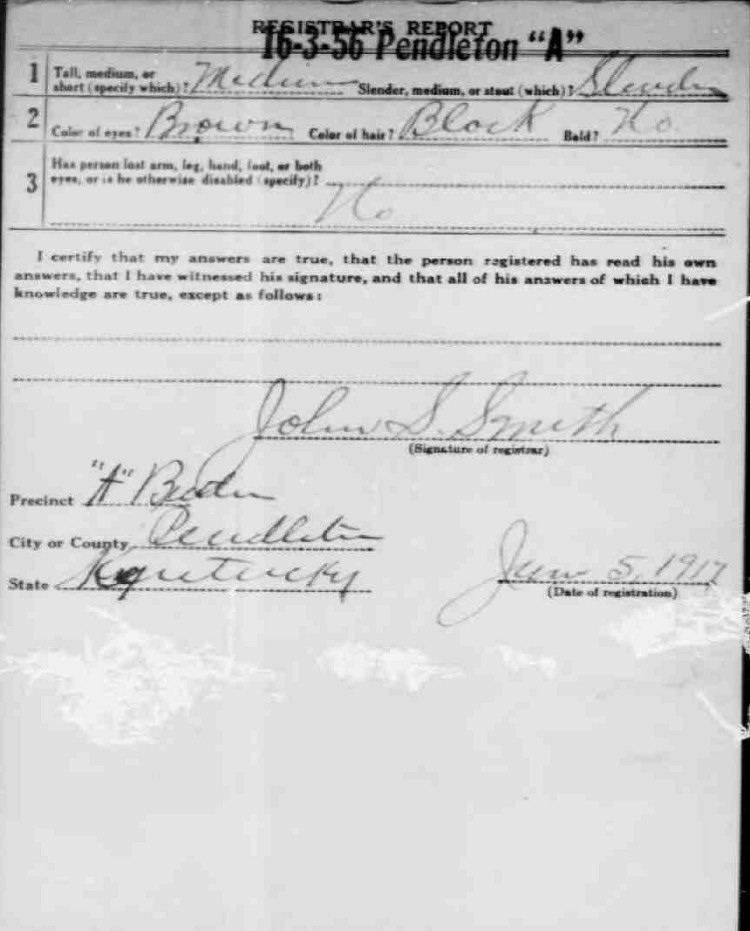 REGISTRAR'S REPORT
16-3-56 Pendleton "A"
1 Tall, medium, or short (specify which)? Medium Slender, medium, or stout (which)? Slender
2 Color of eyes? Brown Color of hair? Black Bald? No
3 Has person lost arm, leg, hand, foot, or both
eyes, or is he otherwise disabled (specify)?
No
I certify that my answers are true, that the person registered has read his own
answers, that I have witnessed his signature, and that all of his answers of which I have
knowledge are true, except as follows:
John S. Smith
(Signature of registrar)
Precinct "A" Butler
City or County Pendleton
State Kentucky
June 5, 1917
(Date of registration)